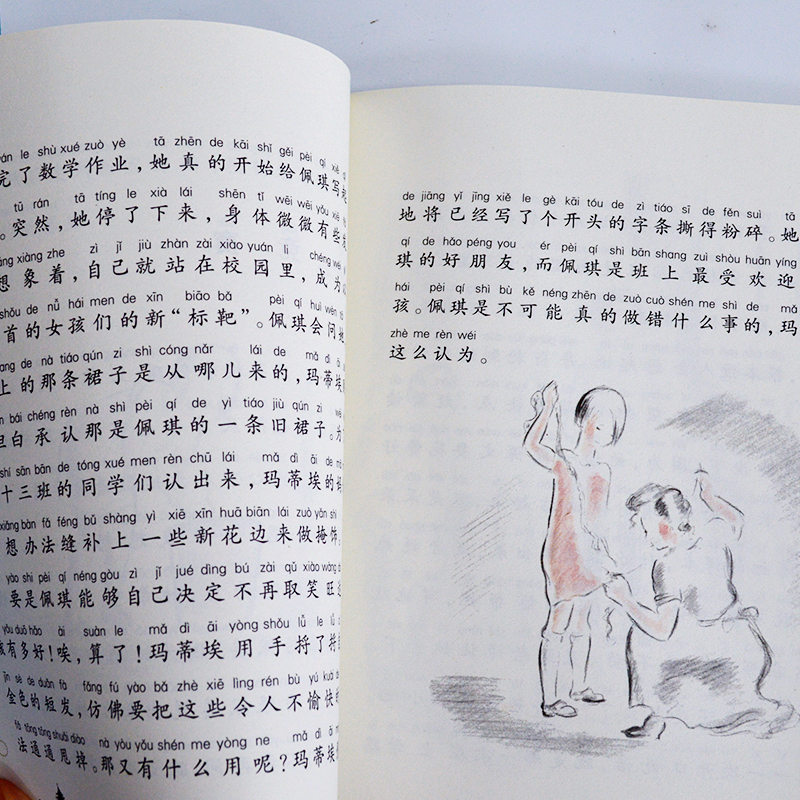 yán le shù xué zuò yè tā zhēn de kāi shǐ gěi pèi qí xiě
完了数学作业，她真的开始给佩琪写
tū rán tā tíng le xià lái shēn tǐ wēi wēi yǒu xiē
。突然，她停了下来，身体微微有些
xiàng zhe zì jǐ jiù zhàn zài xiào yuán li chéng wéi
想象着，自己就站在校园里，成为
shǒu de nǚ hái men de xīn biāo bǎ pèi qí huì wèn
首的女孩们的新“标靶”。佩琪会问她
de nà tiáo qún zi shì cóng nǎr lái de mǎ dì āi
上的那条裙子是从哪儿来的，玛蒂埃
bái chéng rèn nà shì pèi qí de yì tiáo jiù qún zi wèi
坦白承认那是佩琪的一条旧裙子。为
shí sān bān de tóng xué men rèn chū lái mǎ dì āi de
十三班的同学们认出来，玛蒂埃的妈
xiǎng bàn fǎ féng bǔ shàng yì xiē xīn huā biān lái zuò yǎn shì
想办法缝补上一些新花边来做掩饰
yào shi pèi qí néng gòu zì jǐ jué dìng bú zài qǔ xiào wàng
要是佩琪能够自己决定不再取笑旺
yǒu duō hǎo ài suàn le mǎ dì āi yòng shǒu lǚ le
该有多好！唉，算了！玛蒂埃用手捋了捋
jīn sè de duǎn fà fǎng fú yào bǎ zhè xiē lìng rén bù yú kuài
金色的短发，仿佛要把这些令人不愉快
fǎ tōng tōng shuǎi diào nà yòu yǒu shén me yòng ne mǎ dì āi
法通通甩掉。那又有什么用呢？玛蒂埃
de jiāng yǐ jīng xiě le gè kāi tóu de zì tiáo sī de fěn suì tā
地将已经写了个开头的字条撕得粉碎。她
qí de hǎo péng you ér pèi qí shì bān shang zuì shòu huān yíng
琪的好朋友，而佩琪是班上最受欢迎
hái pèi qí shì bù kě néng zhēn de zuò cuò shén me shì de mǎ
孩。佩琪是不可能真的做错什么事的，玛
zhè me rèn wéi
这么认为。